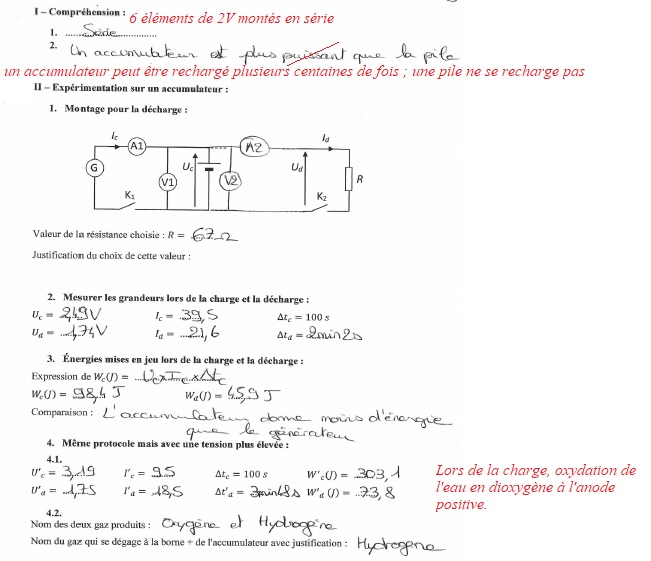 I – Compréhension : 6 éléments de 2V montés en série
1. Série
2. Un accumulateur est plus puissant que la pile
un accumulateur peut être rechargé plusieurs centaines de fois ; une pile ne se recharge pas
II – Expérimentation sur un accumulateur :
1. Montage pour la décharge :
Ic A1 A2 Id
G Uc V1 V2 Ud R
K1 K2
Valeur de la résistance choisie : R = 67 Ω
Justification du choix de cette valeur :
2. Mesurer les grandeurs lors de la charge et la décharge :
Uc = 2,49V Ic = 39,5 Δtc = 100 s
Ud = 1,74V Id = 21,6 Δtd = 2min2s
3. Énergies mises en jeu lors de la charge et la décharge :
Expression de Wc(J) = Uc×Ic×Δtc
Wc(J) = 98,4 J Wd(J) = 45,9 J
Comparaison : L'accumulateur donne moins d'énergie
que le générateur
4. Même protocole mais avec une tension plus élevée :
4.1.
U'c = 3,19 I'c = 95 Δtc = 100 s W'c(J) = 303,1
U'd = 1,75 I'd = 18,5 Δt'd = 3min48s W'd (J) = 73,8
Lors de la charge, oxydation de
l'eau en dioxygène à l'anode
positive.
4.2.
Nom des deux gaz produits : Oxygène et Hydrogène
Nom du gaz qui se dégage à la borne + de l'accumulateur avec justification : Hydrogène